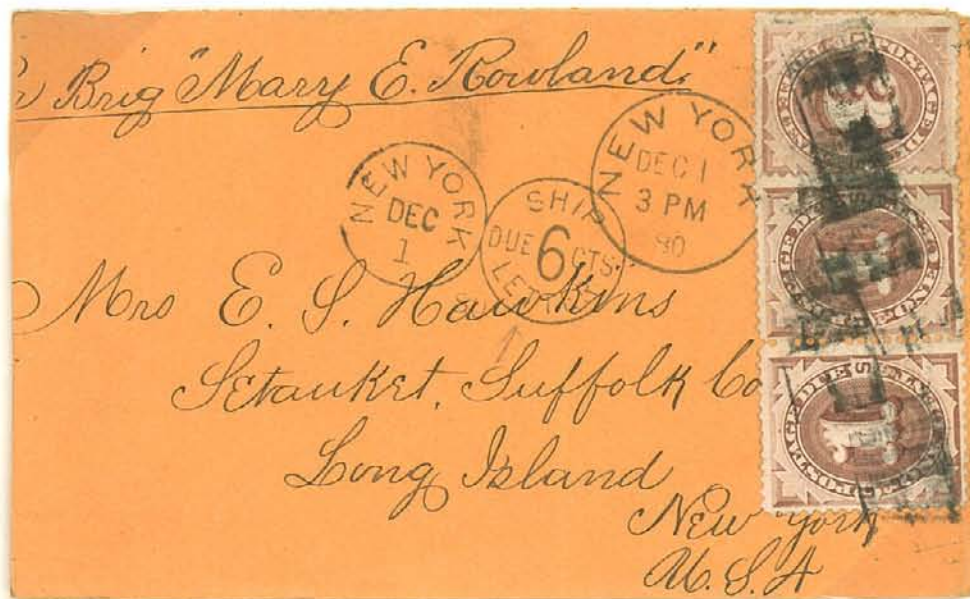 Brig "Mary E. Rowland"
NEW YORK
DEC
1
SHIP
DUE 6 CTS.
LETTER
NEW YORK
DEC 1
3 PM
80
Mrs E. S. Hawkins
Setauket, Suffolk Co
Long Island
New York
U.S.A